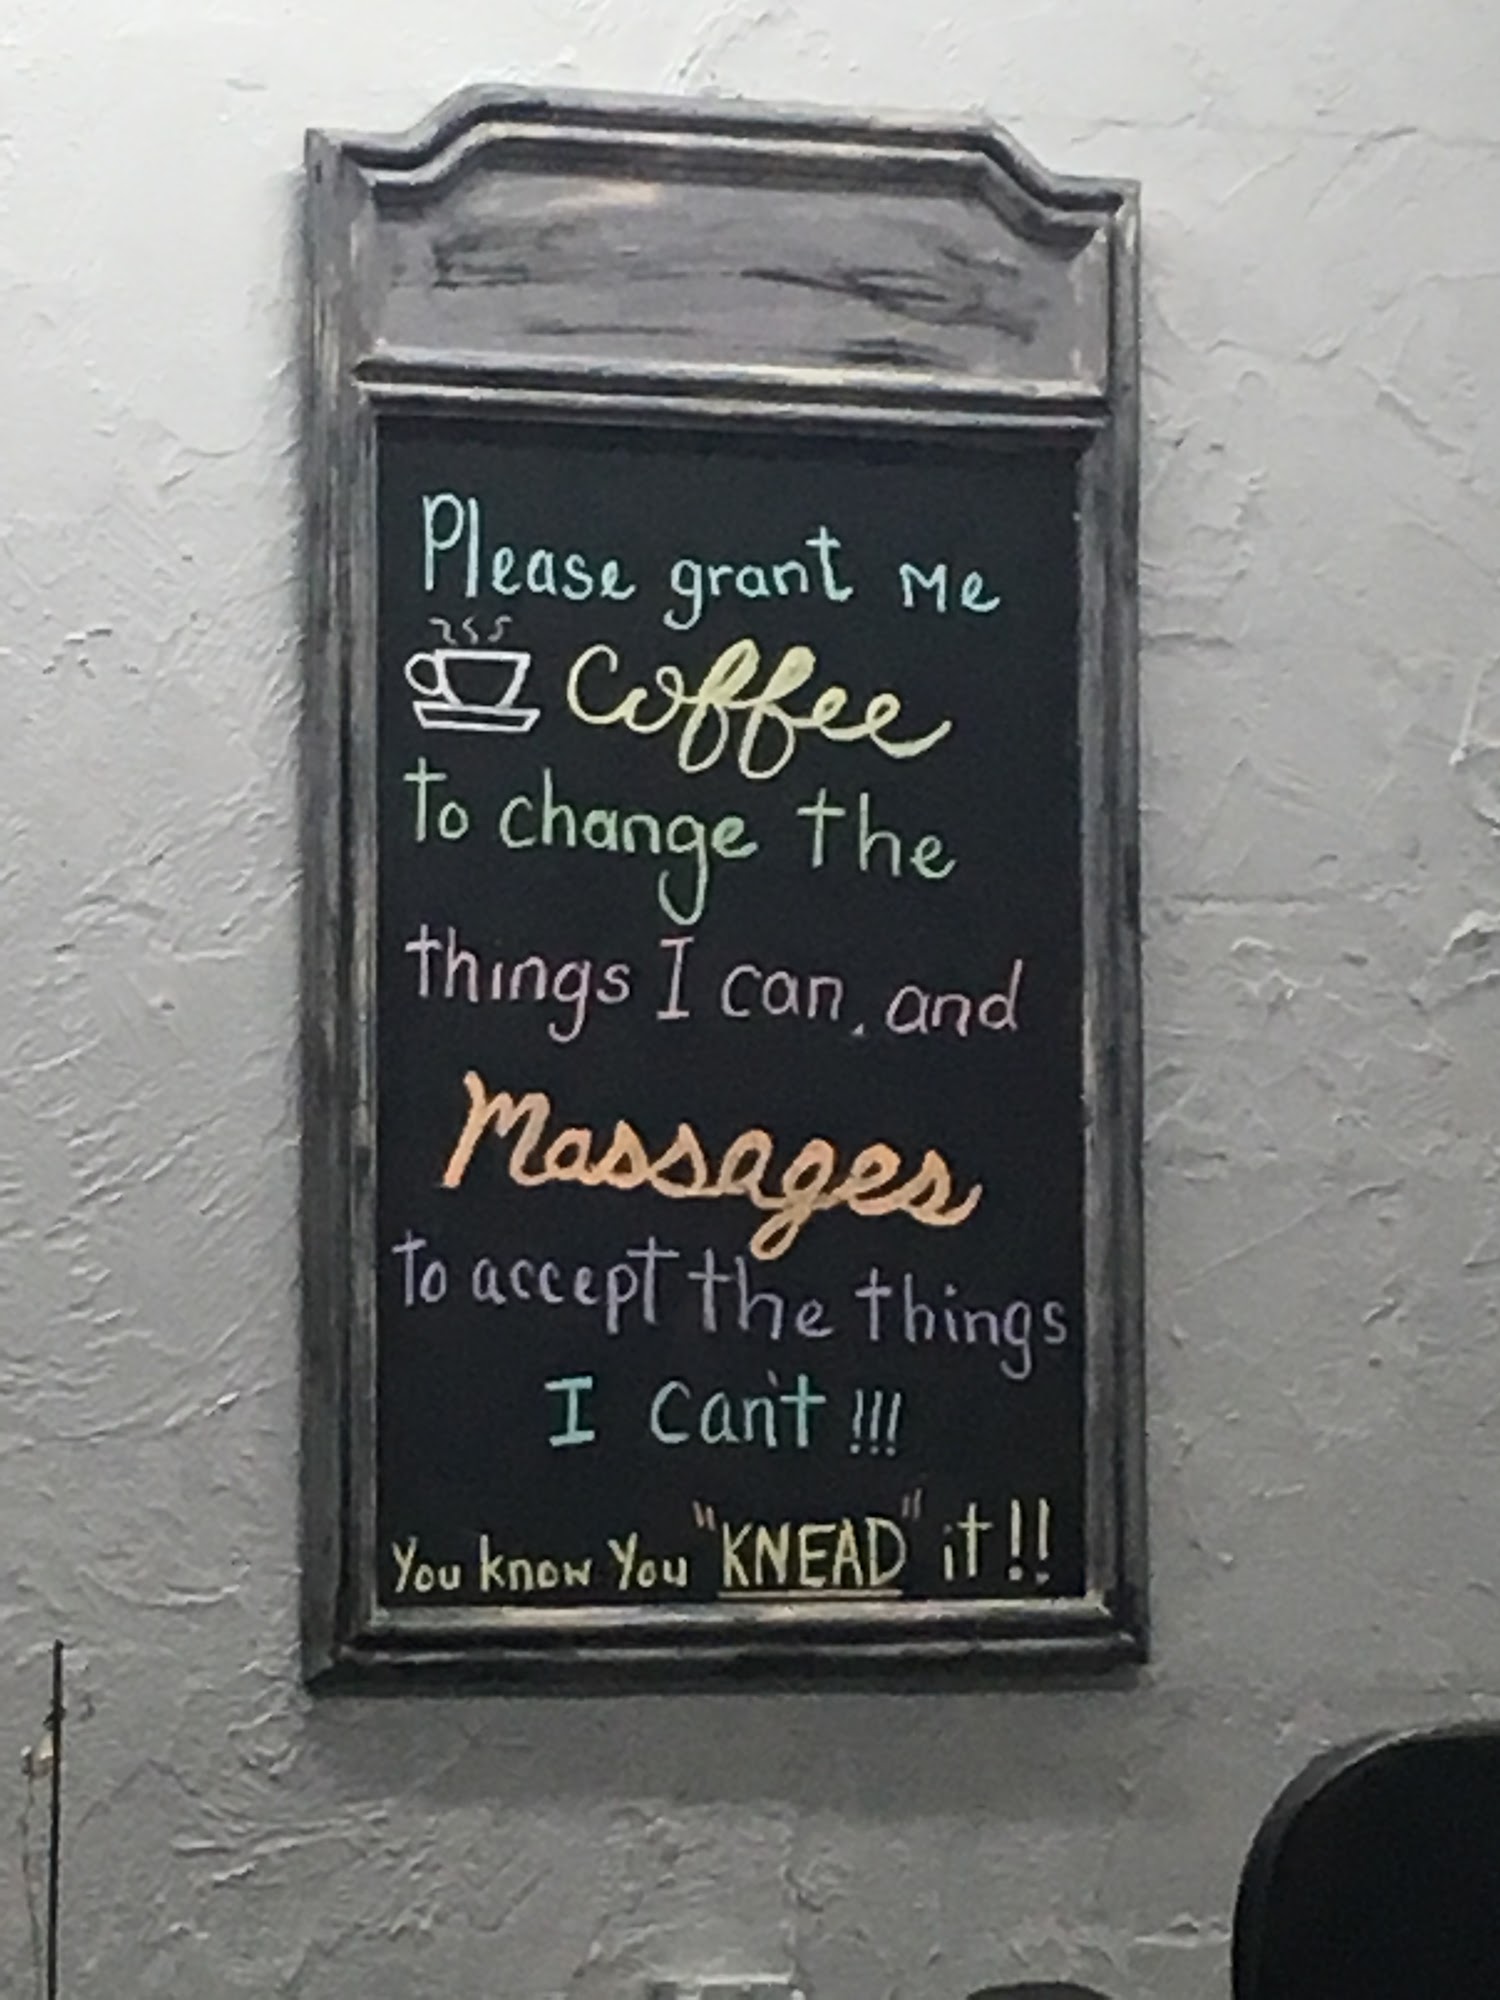 Please grant me
Coffee
to change the
things I can, and
Massages
to accept the things
I can't !!!
You know You "KNEAD" it!!